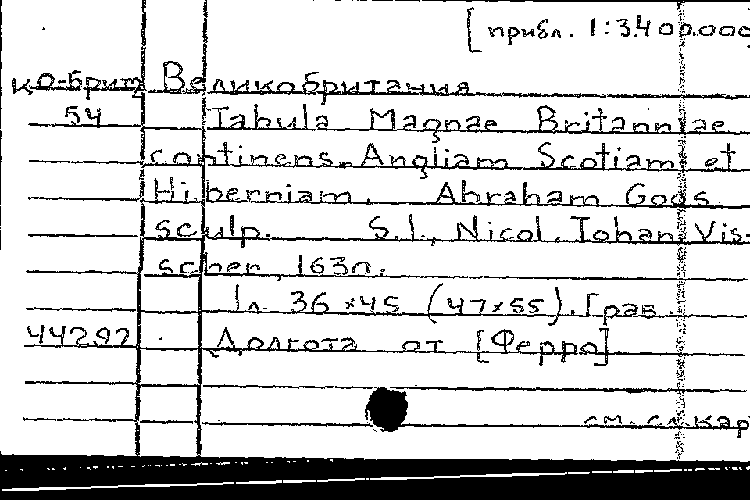 [прибл. 1:3.400.000
Ко-Брит Великобритания
54 Tabula Magnae Britanniae
continens Angliam Scotiam et
Hiberniam. Abraham Goos
sculp. S.l., Nicol. Iohan Vis-
scher, 1630.
1л. 36×45 (47×55). Грав.
44292 Долгота от [Ферро]
см. сл. кар